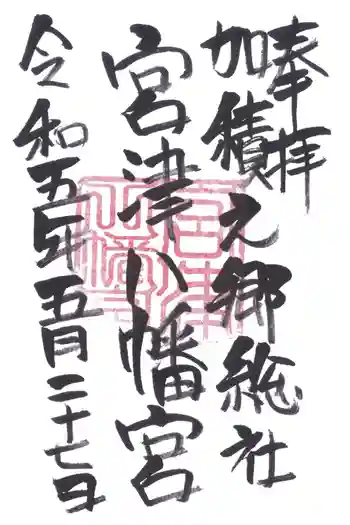 奉拝
加積之郷総社
宮津八幡宮
令和五年五月二十七日